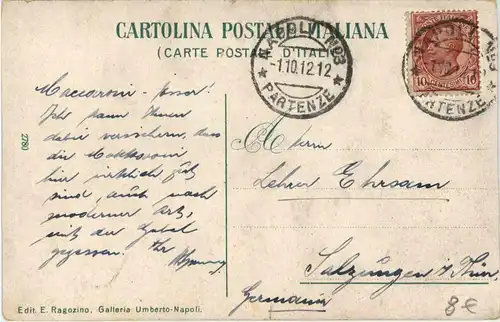 CARTOLINA POSTALE ITALIANA
(CARTE POSTALE D'ITALIE)
NAPOLI
-1.10.12.12
★ PARTENZE ★
10 10
PARTENZE
Maccaroni-Esser!
Ich kann Ihnen
dabei versichern, das
die Makkaroni
hier wirklich gut
sind, auch nach
moderner Art,
mit der Gabel
gegessen. Ihr
2780
Herrn
Lehrer Ehrsam
Salzungen i/ Thür.
Germania
Edit. E. Ragozino, Galleria Umberto-Napoli.
8€